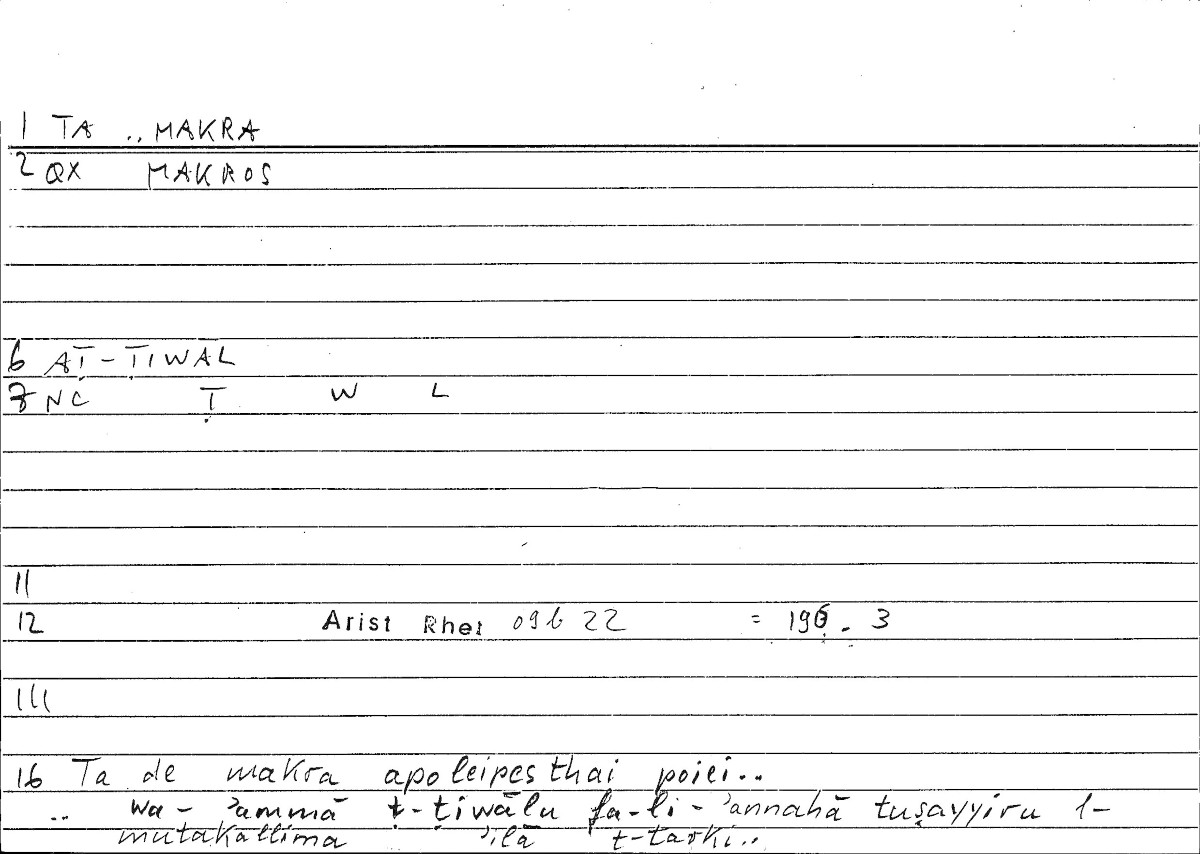 1 TA .. MAKRA
2 QX MAKROS
6 AṬ-ṬIWĀL
7 NC Ṭ W L
11
12 Arist Rhet 09b 22 = 196.3
111
16 Ta de makra apoleipesthai poiei..
.. wa-ʾammā ṭ-ṭiwālu fa-li-ʾannahā tuṣayyiru l-
mutakallima ʾilā t-tarki..